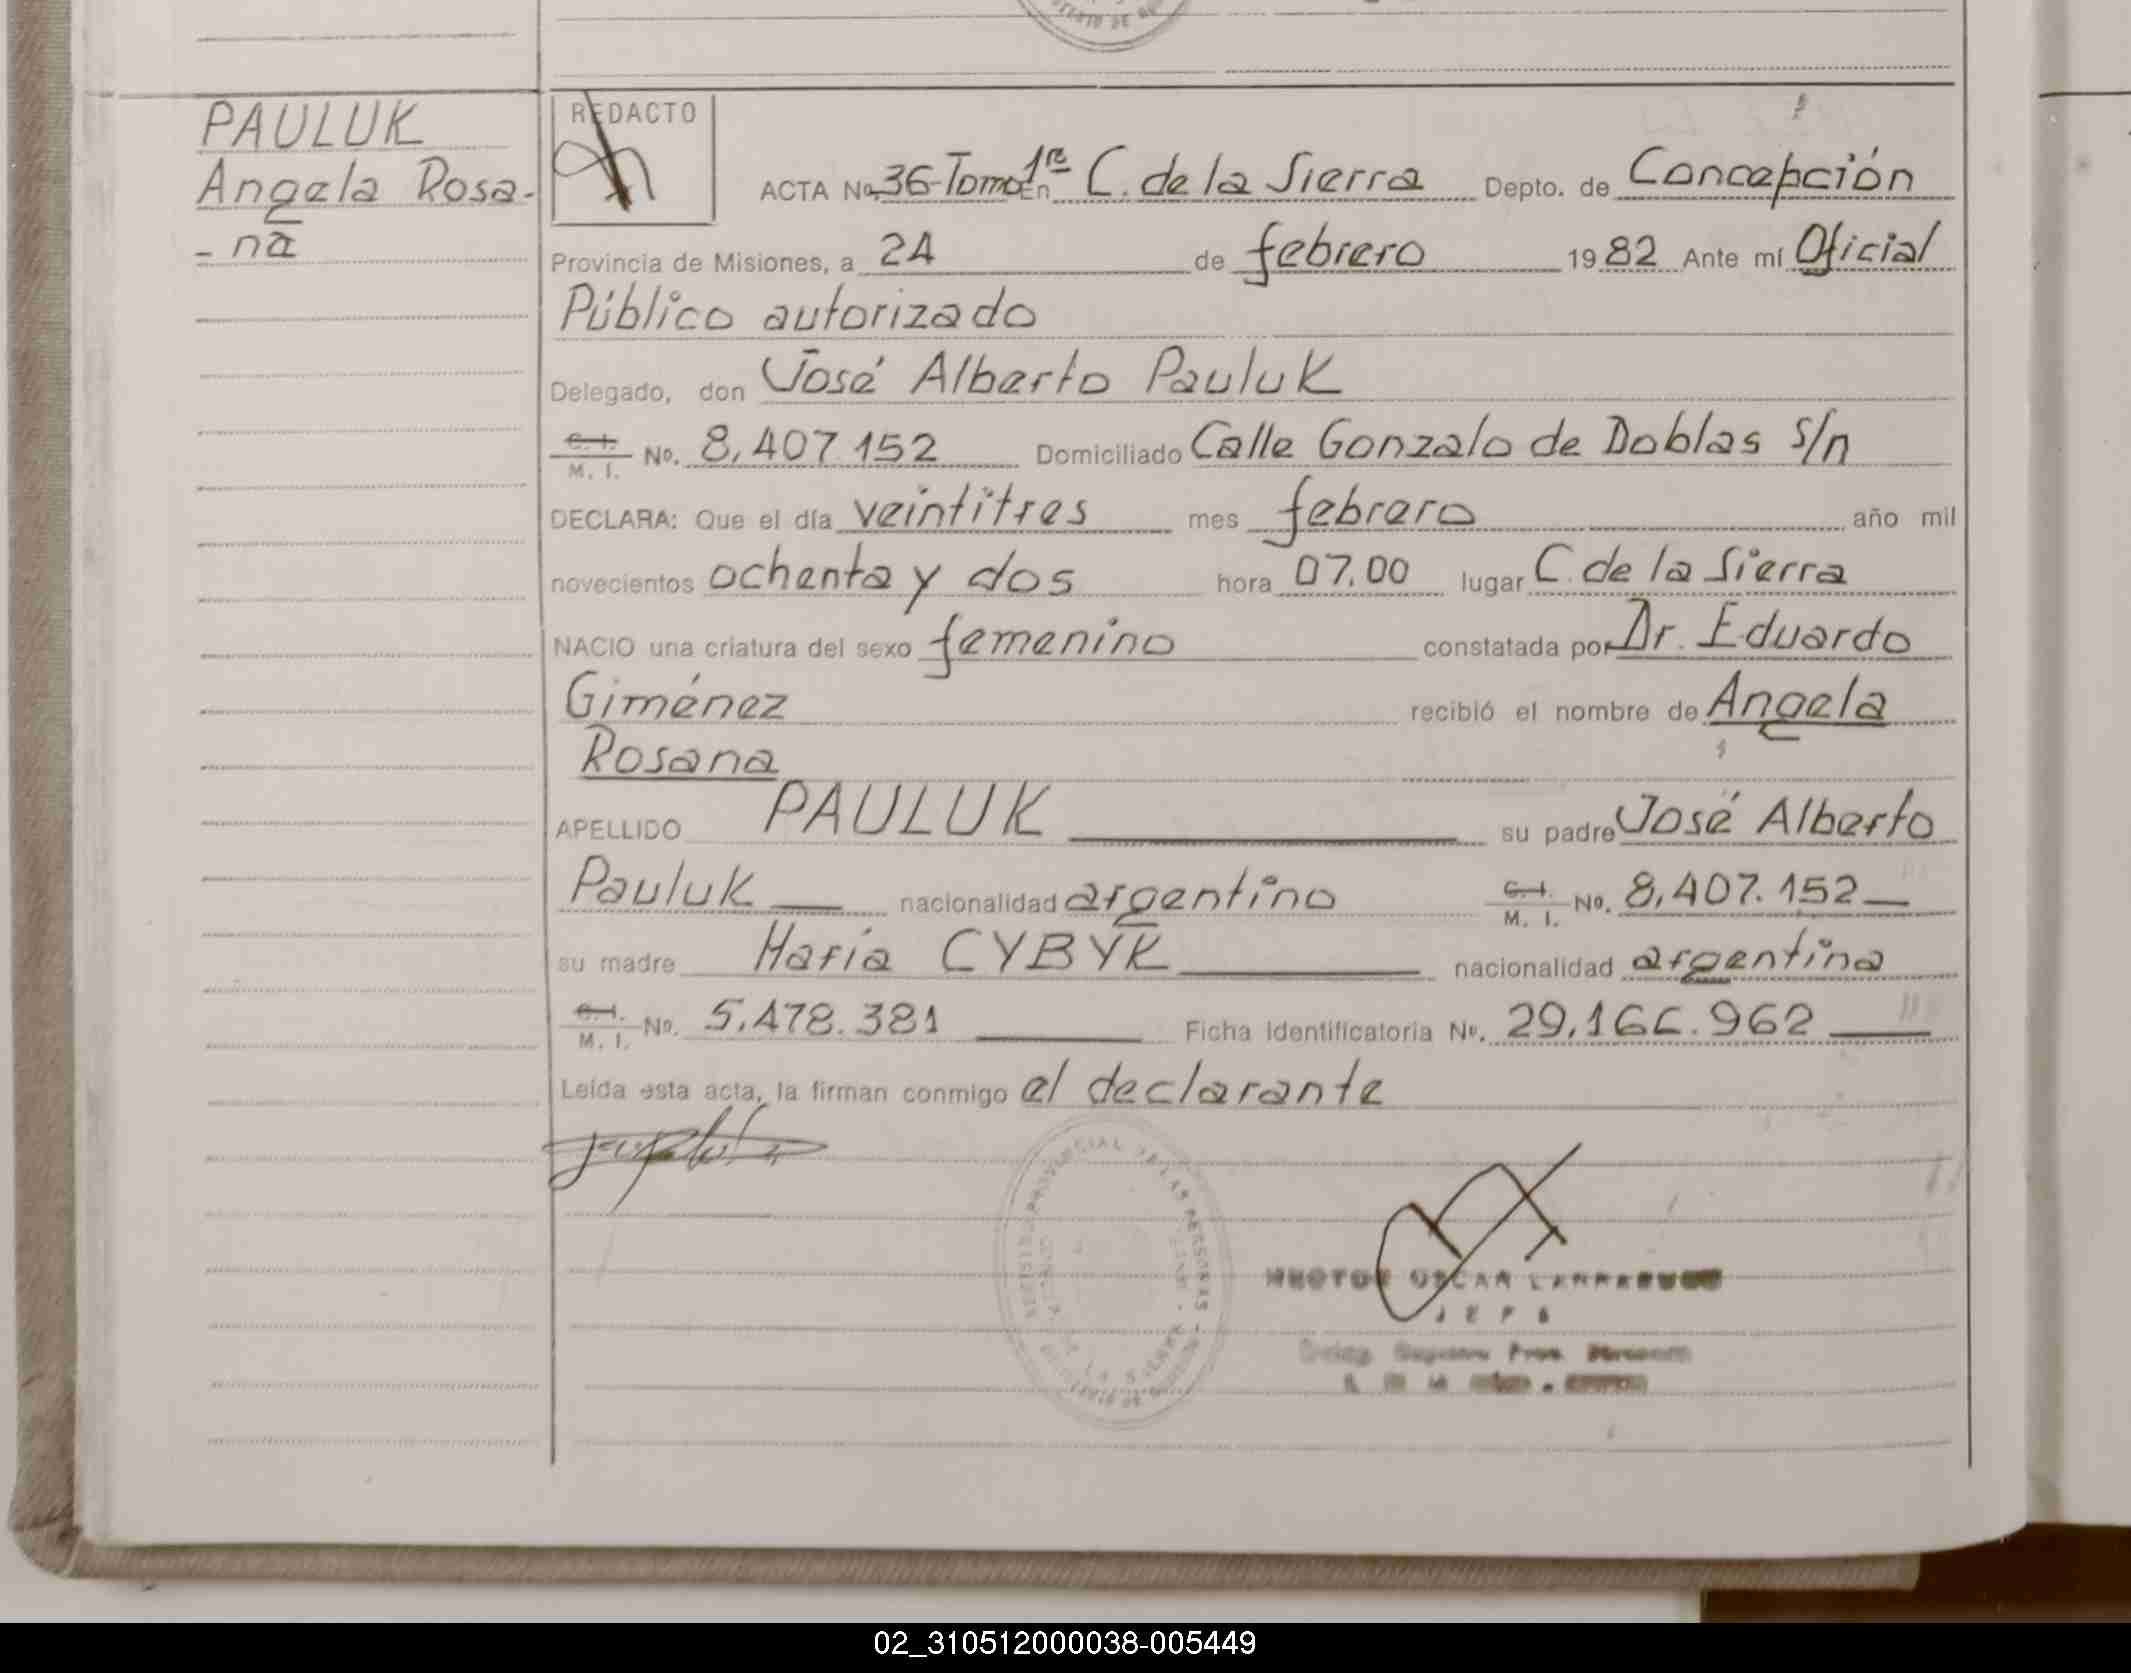 PAULUK
Angela Rosa-
- na
REDACTO
ACTA No. 36-Tomo 1ro En C. de la Sierra Depto. de Concepción
Provincia de Misiones, a 24 de febrero 1982 Ante mí Oficial
Público autorizado
Delegado, don José Alberto Pauluk
C. I. M. I. No. 8,407.152 Domiciliado Calle Gonzalo de Doblas s/n
DECLARA: Que el día veintitres mes febrero año mil
novecientos ochenta y dos hora 07.00 lugar C. de la Sierra
NACIO una criatura del sexo femenino constatada por Dr. Eduardo
Giménez recibió el nombre de Angela
Rosana
APELLIDO PAULUK su padre José Alberto
Pauluk nacionalidad argentino C. I. M. I. No. 8,407.152
su madre María CYBYK nacionalidad argentina
C. I. M. I. No. 5.478.381 Ficha Identificatoria No. 29.166.962
Leída esta acta, la firman conmigo el declarante
OSCAR
JEFE
02_310512000038-005449